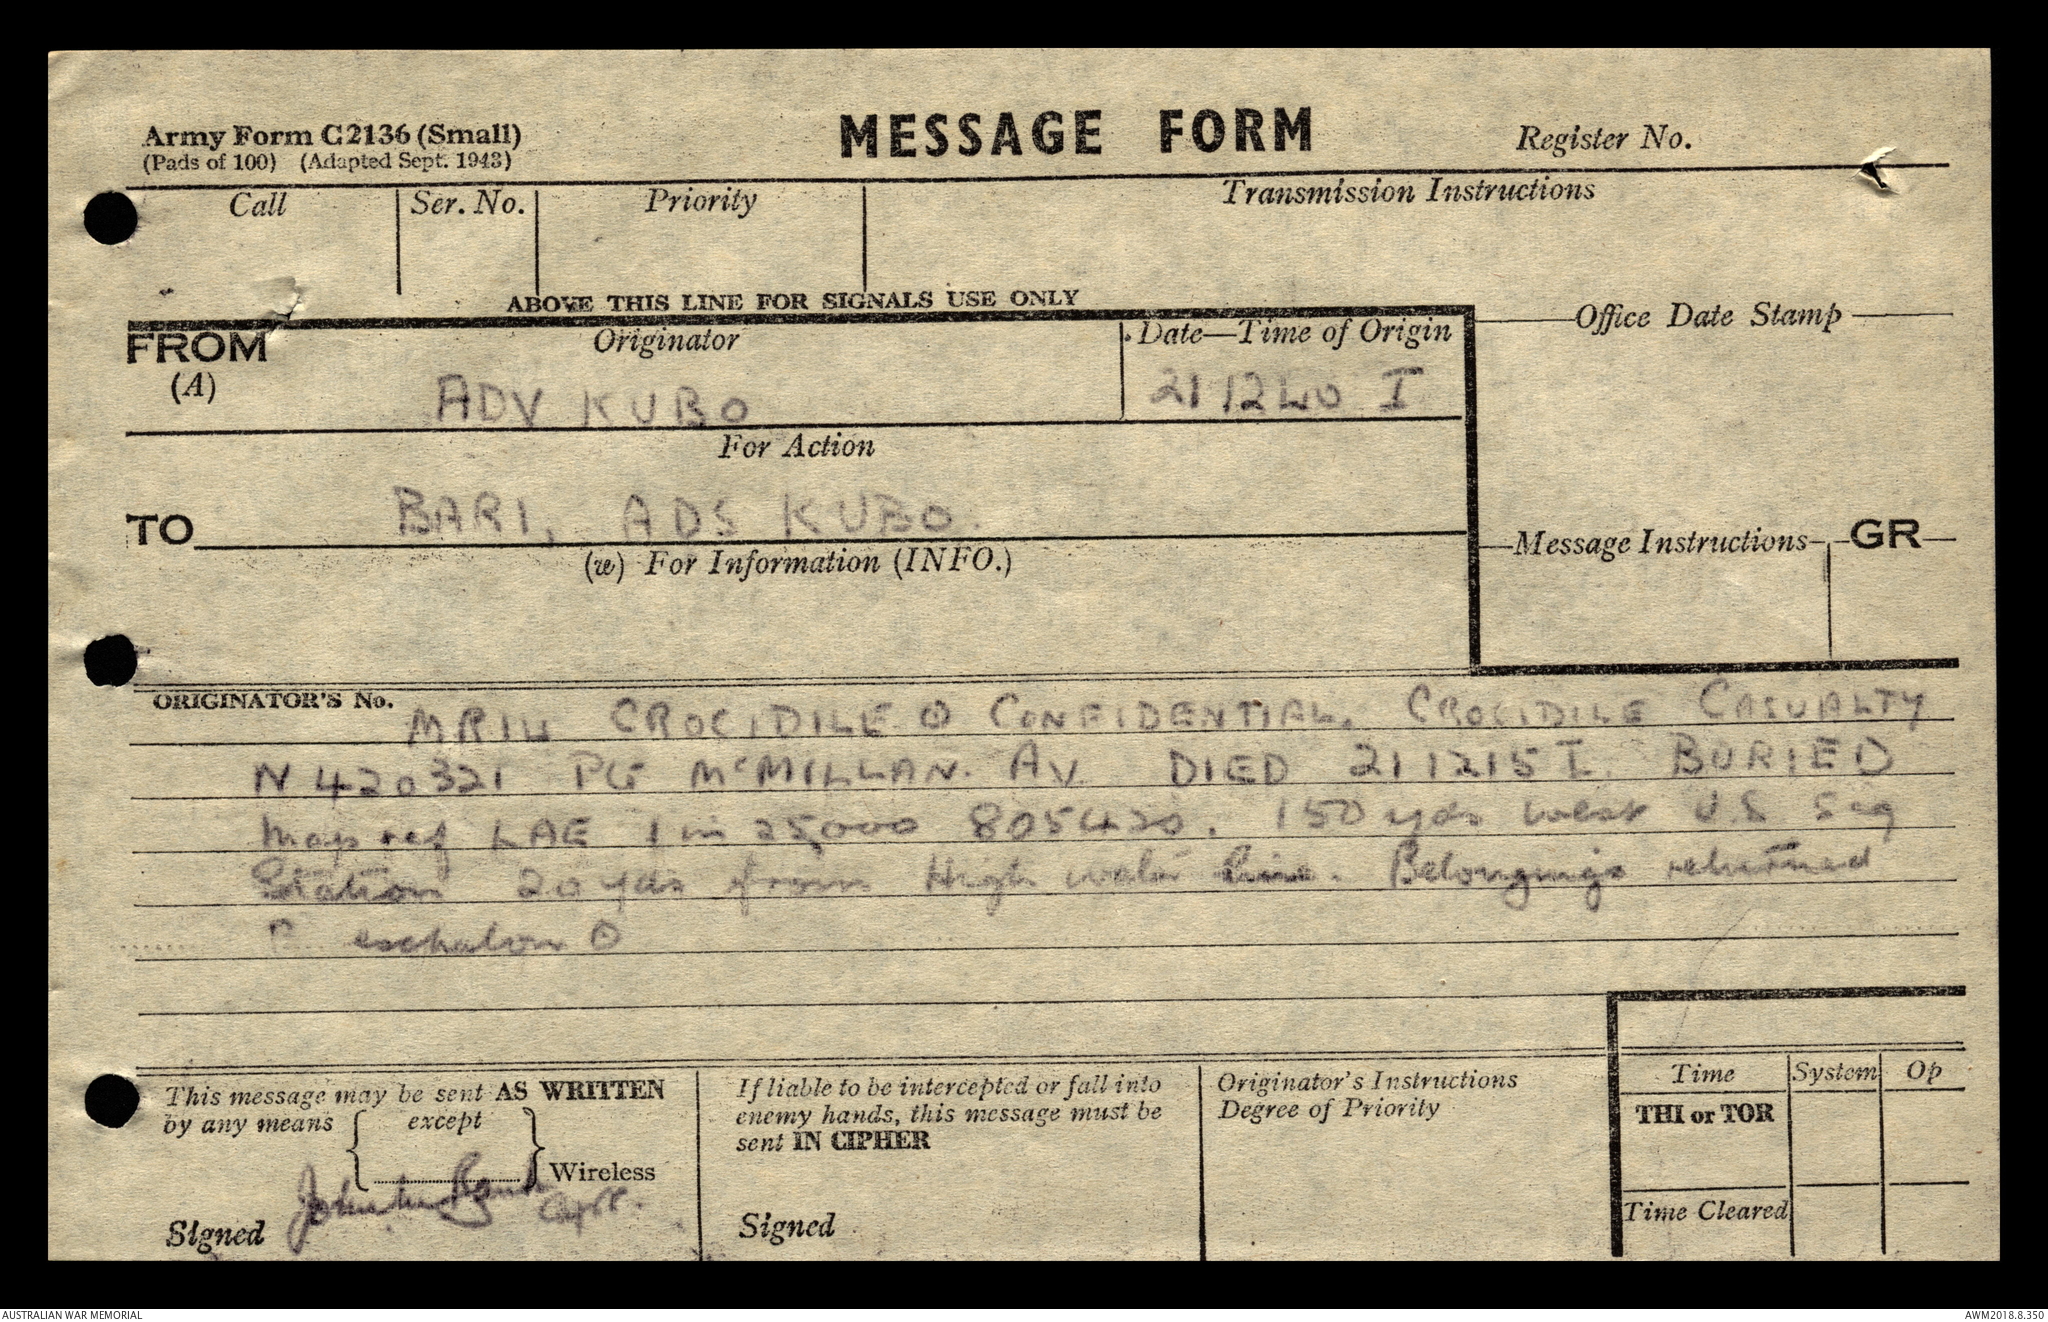 Army Form C2136 (Small)
(Pads of 100) (Adapted Sept. 1943)
MESSAGE FORM
Register No.
Call
Ser. No.
Priority
Transmission Instructions
ABOVE THIS LINE FOR SIGNALS USE ONLY
FROM
(A)
Originator
Date—Time of Origin
Office Date Stamp
ADV KUBO
211240 I
For Action
TO
BARI, ADS KUBO.
(w) For Information (INFO.)
Message Instructions
GR
ORIGINATOR'S No.
MR14 CROCIDILE CONFIDENTIAL. CROCIDILE CASUALTY
N420321 McMILLAN. AV DIED 211215 I. BURIED
Map ref LAE 1 in 25,000 805420. 150 yds west U.S Sig
Station 20 yds from High water line. Belongings returned
eschalon
This message may be sent AS WRITTEN
by any means
except
Wireless
Signed
Capt.
If liable to be intercepted or fall into
enemy hands, this message must be
sent IN CIPHER
Signed
Originator's Instructions
Degree of Priority
Time
System
Op
THI or TOR
Time Cleared
AUSTRALIAN WAR MEMORIAL
AWM2018.8.350